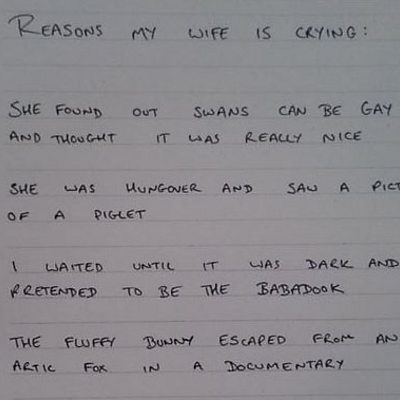 REASONS MY WIFE IS CRYING:
SHE FOUND OUT SWANS CAN BE GAY
AND THOUGHT IT WAS REALLY NICE
SHE WAS HUNGOVER AND SAW A PICT
OF A PIGLET
I WAITED UNTIL IT WAS DARK AND
PRETENDED TO BE THE BABADOOK
THE FLUFFY BUNNY ESCAPED FROM AN
ARTIC FOX IN A DOCUMENTARY